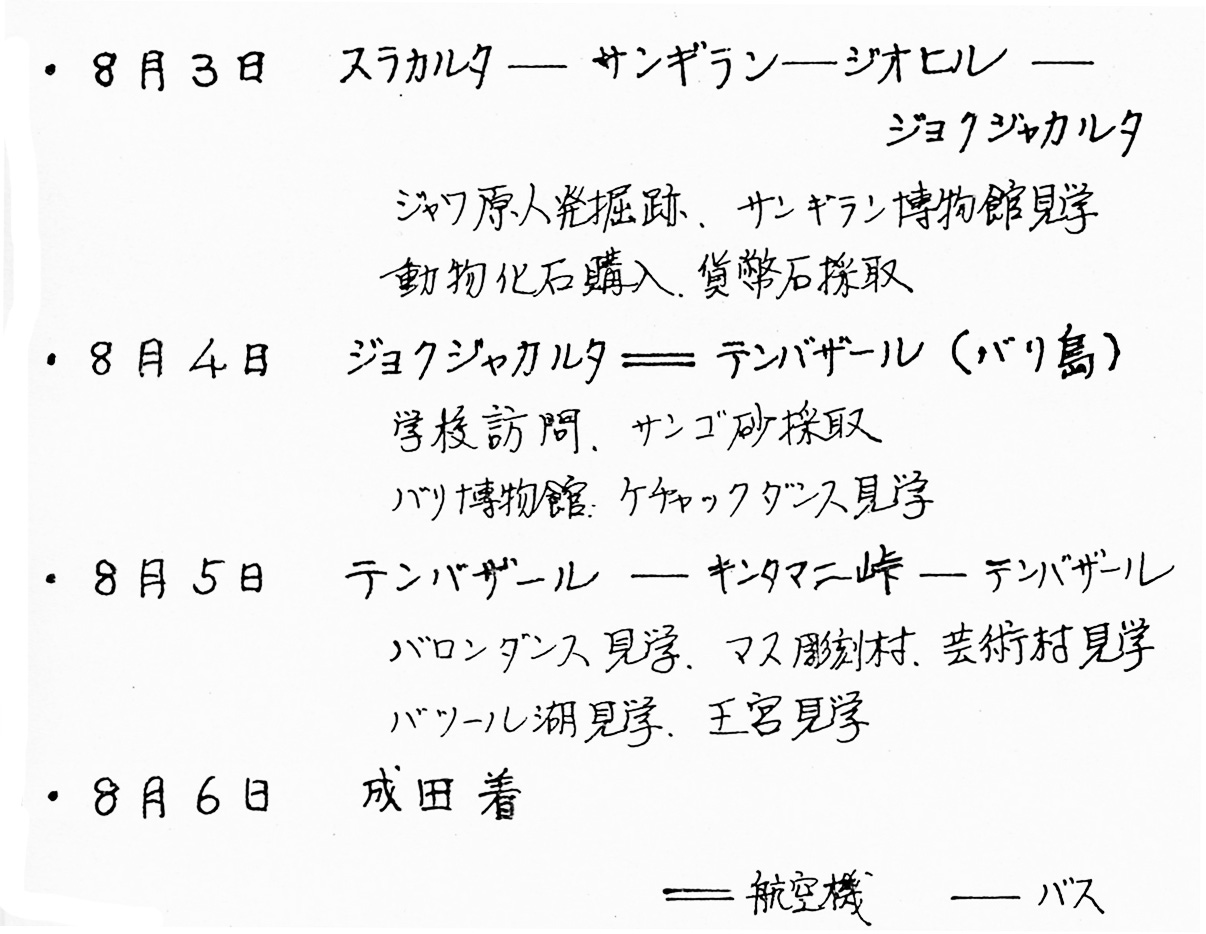 ・8月3日 スラカルタ — サンギラン — ジオヒル —
ジョクジャカルタ
ジャワ原人発掘跡、サンギラン博物館見学
動物化石購入、貨幣石採取
・8月4日 ジョクジャカルタ ＝ テンバザール（バリ島）
学校訪問、サンゴ砂採取
バリ博物館、ケチャックダンス見学
・8月5日 テンバザール — キンタマニ峠 — テンバザール
バロンダンス見学、マス彫刻村、芸術村見学
バツール湖見学、王宮見学
・8月6日 成田着
＝ 航空機 — バス